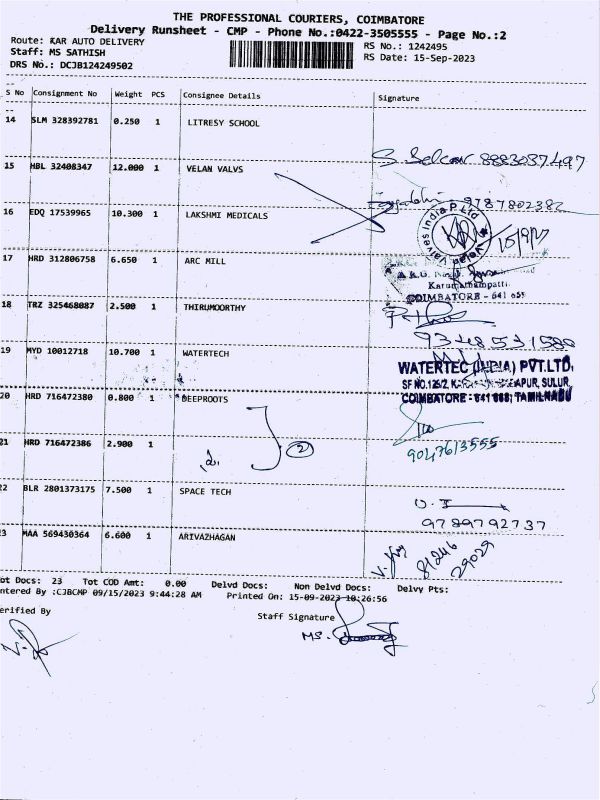 THE PROFESSIONAL COURIERS, COIMBATORE
Delivery Runsheet - CMP - Phone No.:0422-3505555 - Page No.:2
Route: KAR AUTO DELIVERY
Staff: MS SATHISH
DRS No.: DCJB124249502
RS No.: 1242495
RS Date: 15-Sep-2023
S No Consignment No Weight PCS Consignee Details Signature
14 SLM 328392781 0.250 1 LITRESY SCHOOL
8883037497
15 HBL 32408347 12.000 1 VELAN VALVS
9787802382
16 EDQ 17539965 10.300 1 LAKSHMI MEDICALS
Velan Valves India P Ltd
17 HRD 312806758 6.650 1 ARC MILL
Karumathampatti
COIMBATORE - 641 659
18 TRZ 325468087 2.500 1 THIRUMOORTHY
19 MYD 10012718 10.700 1 WATERTECH
WATERTEC (INDIA) PVT.LTD.
COIMBATORE - 641 668, TAMILNADU
20 HRD 716472380 0.800 1 DEEPROOTS
21 HRD 716472386 2.900 1
2
9047613555
22 BLR 2801373175 7.500 1 SPACE TECH
9789792737
23 MAA 569430364 6.600 1 ARIVAZHAGAN
81246
29029
ot Docs: 23 Tot COD Amt: 0.00 Delvd Docs: Non Delvd Docs: Delvy Pts:
ntered By :CJBCMP 09/15/2023 9:44:28 AM Printed On: 15-09-2023 10:26:56
erified By
Staff Signature
MS.